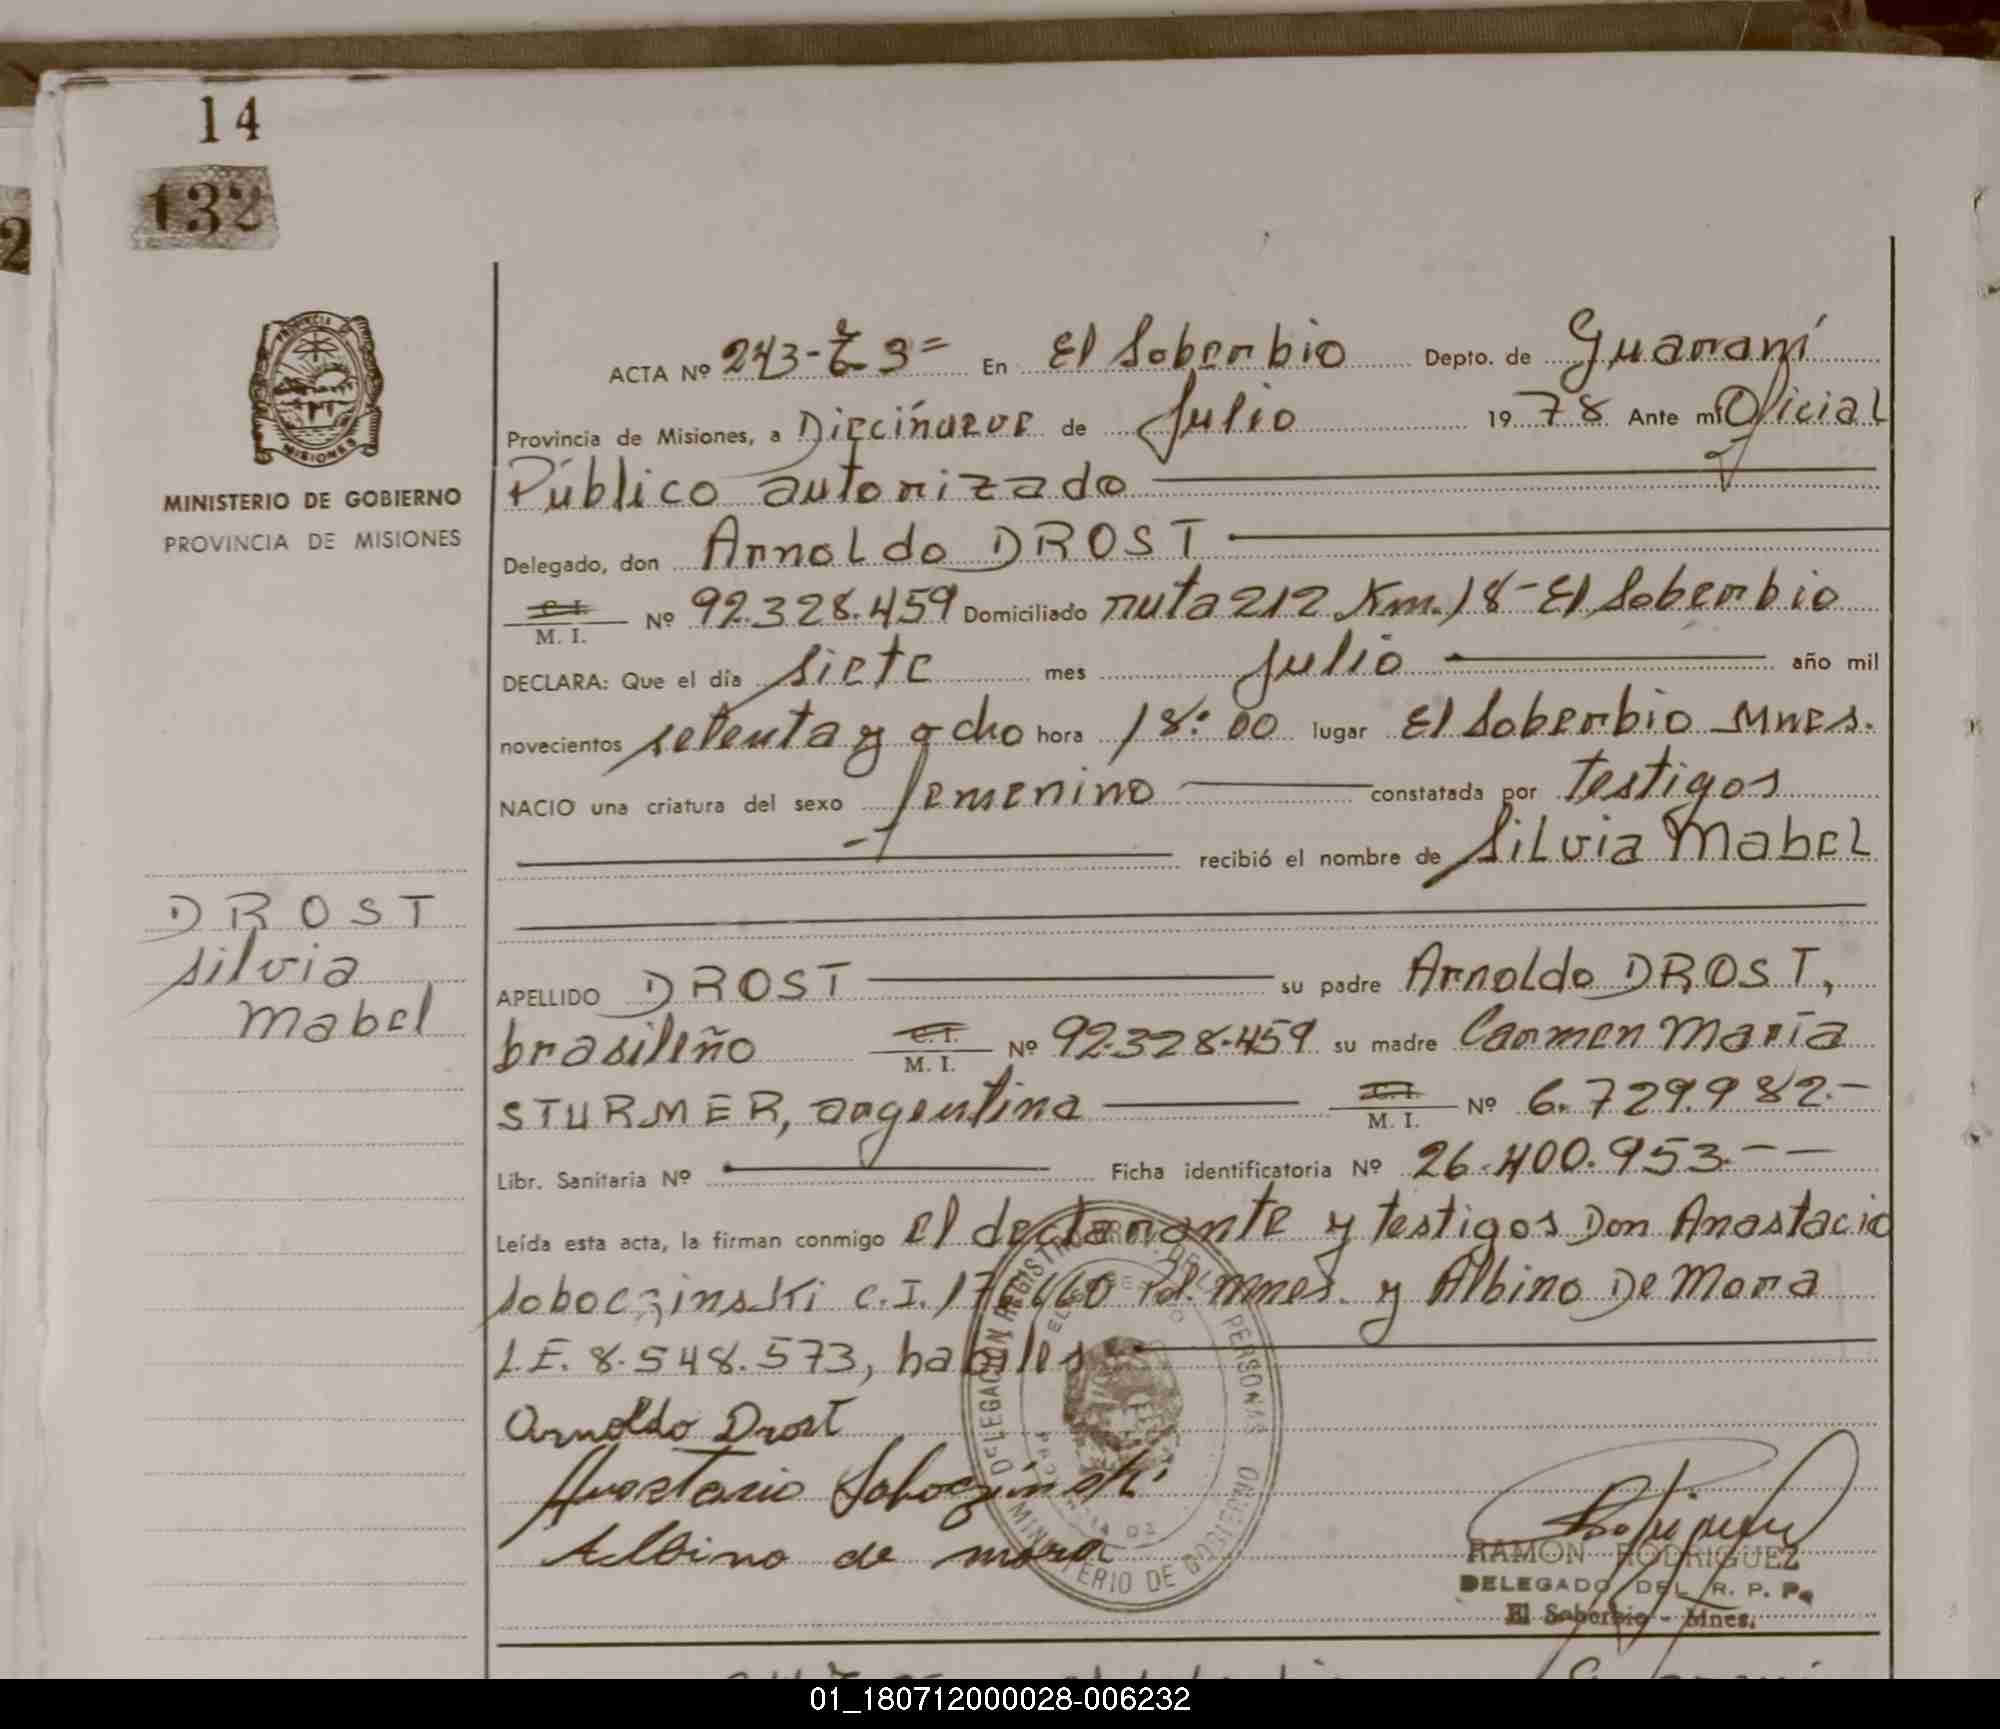 14
132
2
MINISTERIO DE GOBIERNO
PROVINCIA DE MISIONES
ACTA Nº 243-T. 3= En El Soberbio Depto. de Guaraní
Provincia de Misiones, a Diecinueve de Julio 1978 Ante mí Oficial
Público autorizado
Delegado, don Arnoldo DROST
C. I. M. I. Nº 92.328.459 Domiciliado ruta 212 Km. 18-El Soberbio
DECLARA: Que el día siete mes julio año mil
novecientos setenta y ocho hora 18:00 lugar El Soberbio Mnes.
NACIO una criatura del sexo femenino constatada por testigos
recibió el nombre de Silvia Mabel
DROST
Silvia
Mabel
APELLIDO DROST su padre Arnoldo DROST,
brasileño C. I. M. I. Nº 92.328.459 su madre Carmen María
STURMER, argentina C. I. M. I. Nº 6.729.982.-
Libr. Sanitaria Nº Ficha identificatoria Nº 26.400.953.--
Leída esta acta, la firman conmigo el declarante y testigos Don Anastacio
Soboczinski C.I. Pol. Mnes. y Albino De Mora
L.E. 8.548.573, habiles
Arnoldo Drost
Anastacio Soboczinski
Albino de mora
DELEGACION REGISTRO PROV. DE PERSONAS
MINISTERIO DE GOBIERNO
RAMON RODRIGUEZ
DELEGADO DEL R. P. P.
El Soberbio - Mnes.
01_180712000028-006232